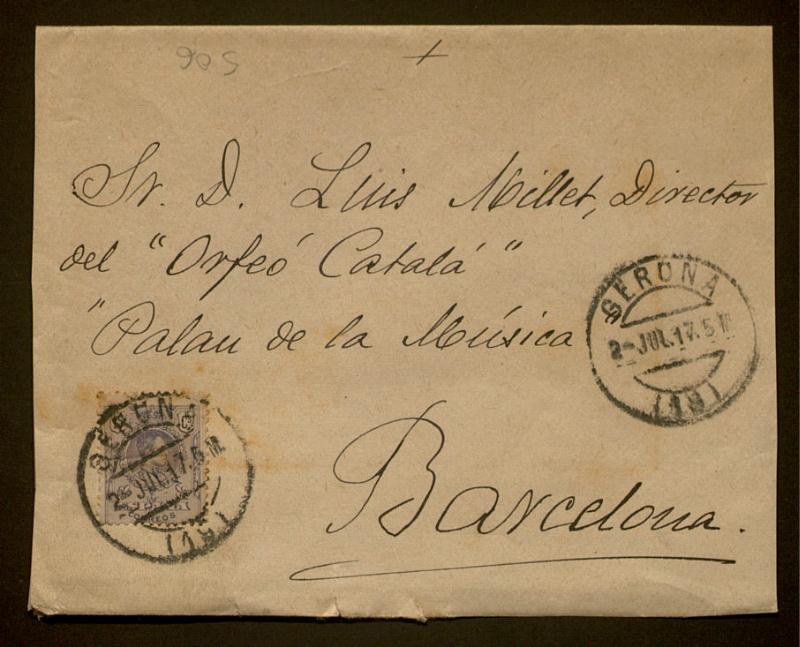 506
+
Sr. D. Luis Millet, Director
del "Orfeó Catalá"
"Palau de la Música"
Barcelona.
GERONA
2-JUL.17.5M
(RV)
GERONA
2-JUL.17.5M
(RV)
CORREOS